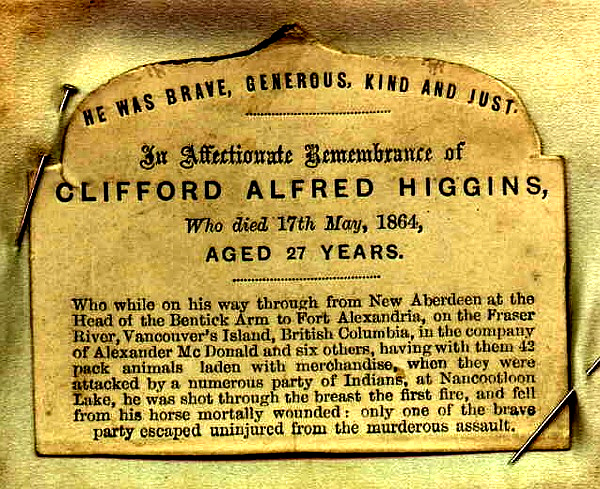 HE WAS BRAVE, GENEROUS, KIND AND JUST.
In Affectionate Remembrance of
CLIFFORD ALFRED HIGGINS,
Who died 17th May, 1864,
AGED 27 YEARS.
Who while on his way through from New Aberdeen at the
Head of the Bentick Arm to Fort Alexandria, on the Fraser
River, Vancouver's Island, British Columbia, in the company
of Alexander Mc Donald and six others, having with them 42
pack animals laden with merchandise, when they were
attacked by a numerous party of Indians, at Nancootloon
Lake, he was shot through the breast the first fire, and fell
from his horse mortally wounded: only one of the brave
party escaped uninjured from the murderous assault.